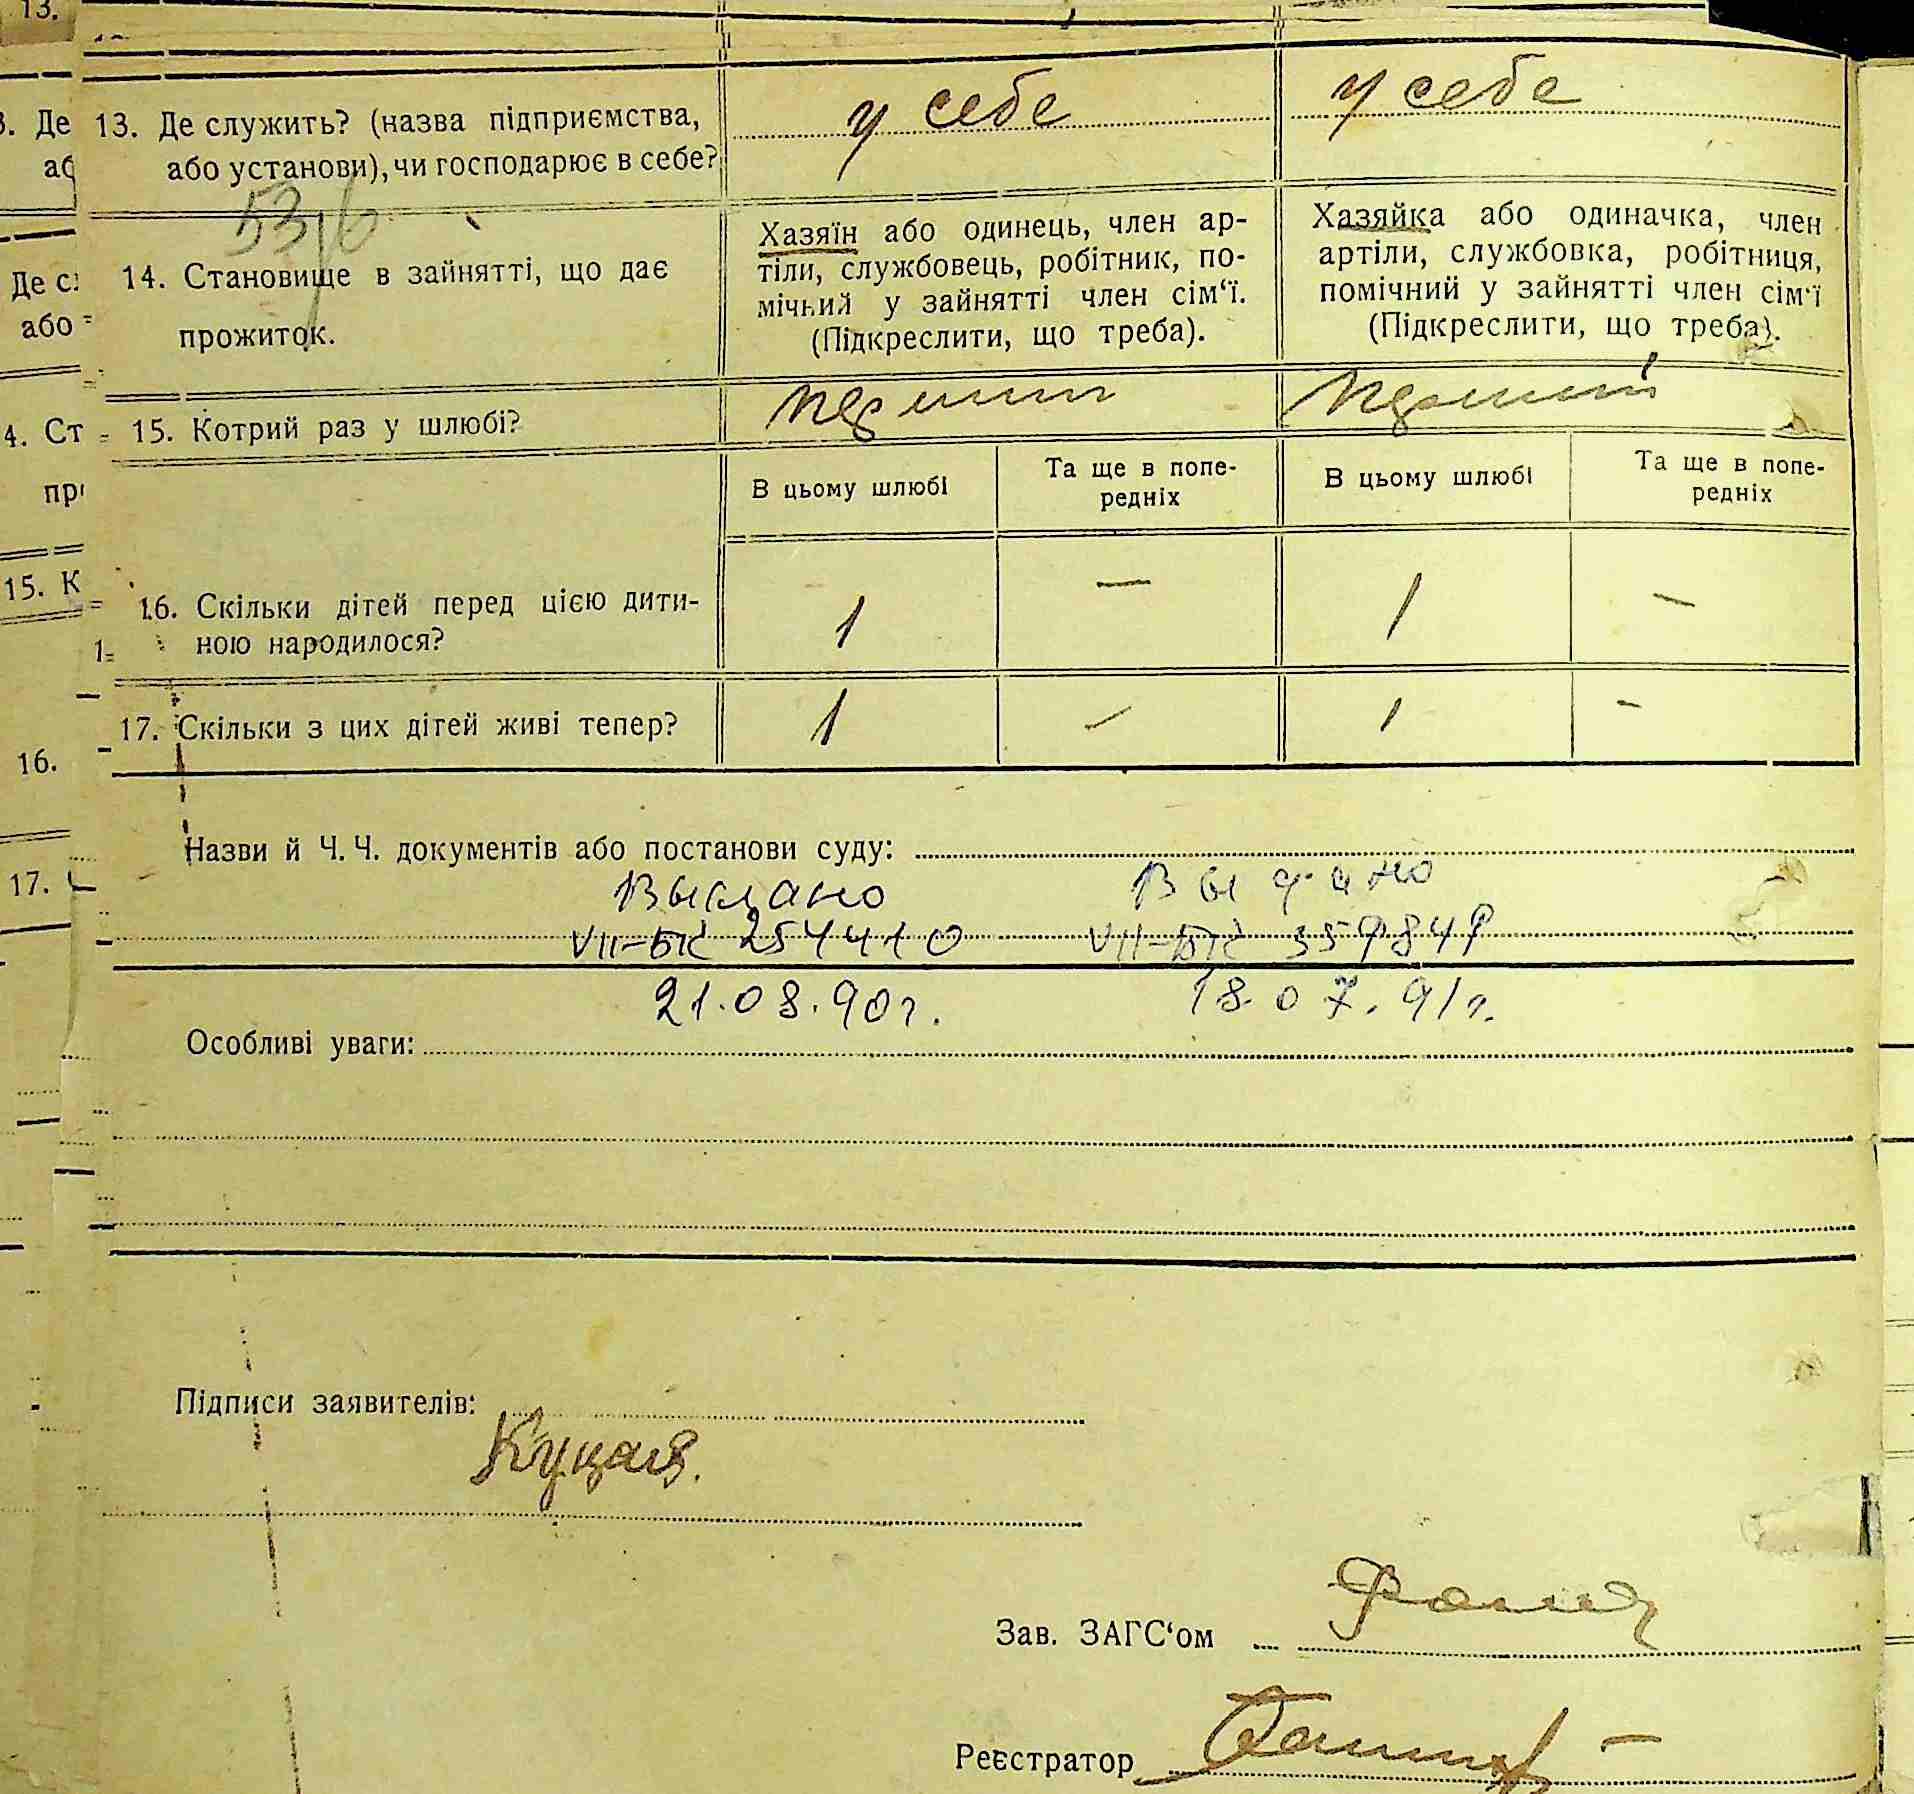 13. Де служить? (назва підприємства, або установи), чи господарює в себе?
у себе
у себе
53/6
14. Становище в зайнятті, що дає прожиток.
Хазяїн або одинець, член ар-
тіли, службовець, робітник, по-
мічний у зайнятті член сім‘ї.
(Підкреслити, що треба).
Хазяйка або одиначка, член
артіли, службовка, робітниця,
помічний у зайнятті член сім‘ї
(Підкреслити, що треба).
15. Котрий раз у шлюбі?
В цьому шлюбі
Та ще в попе-
редніх
В цьому шлюбі
Та ще в попе-
редніх
16. Скільки дітей перед цією дити-
ною народилося?
1 — 1 —
17. Скільки з цих дітей живі тепер?
1 — 1 —
Назви й Ч. Ч. документів або постанови суду:
Выдано Выдано
VII-БК 254410 VII-БК
21.08.90г. 18.07.91г.
Особливі уваги:
Підписи заявителів:
Куцая.
Зав. ЗАГС‘ом
Реєстратор